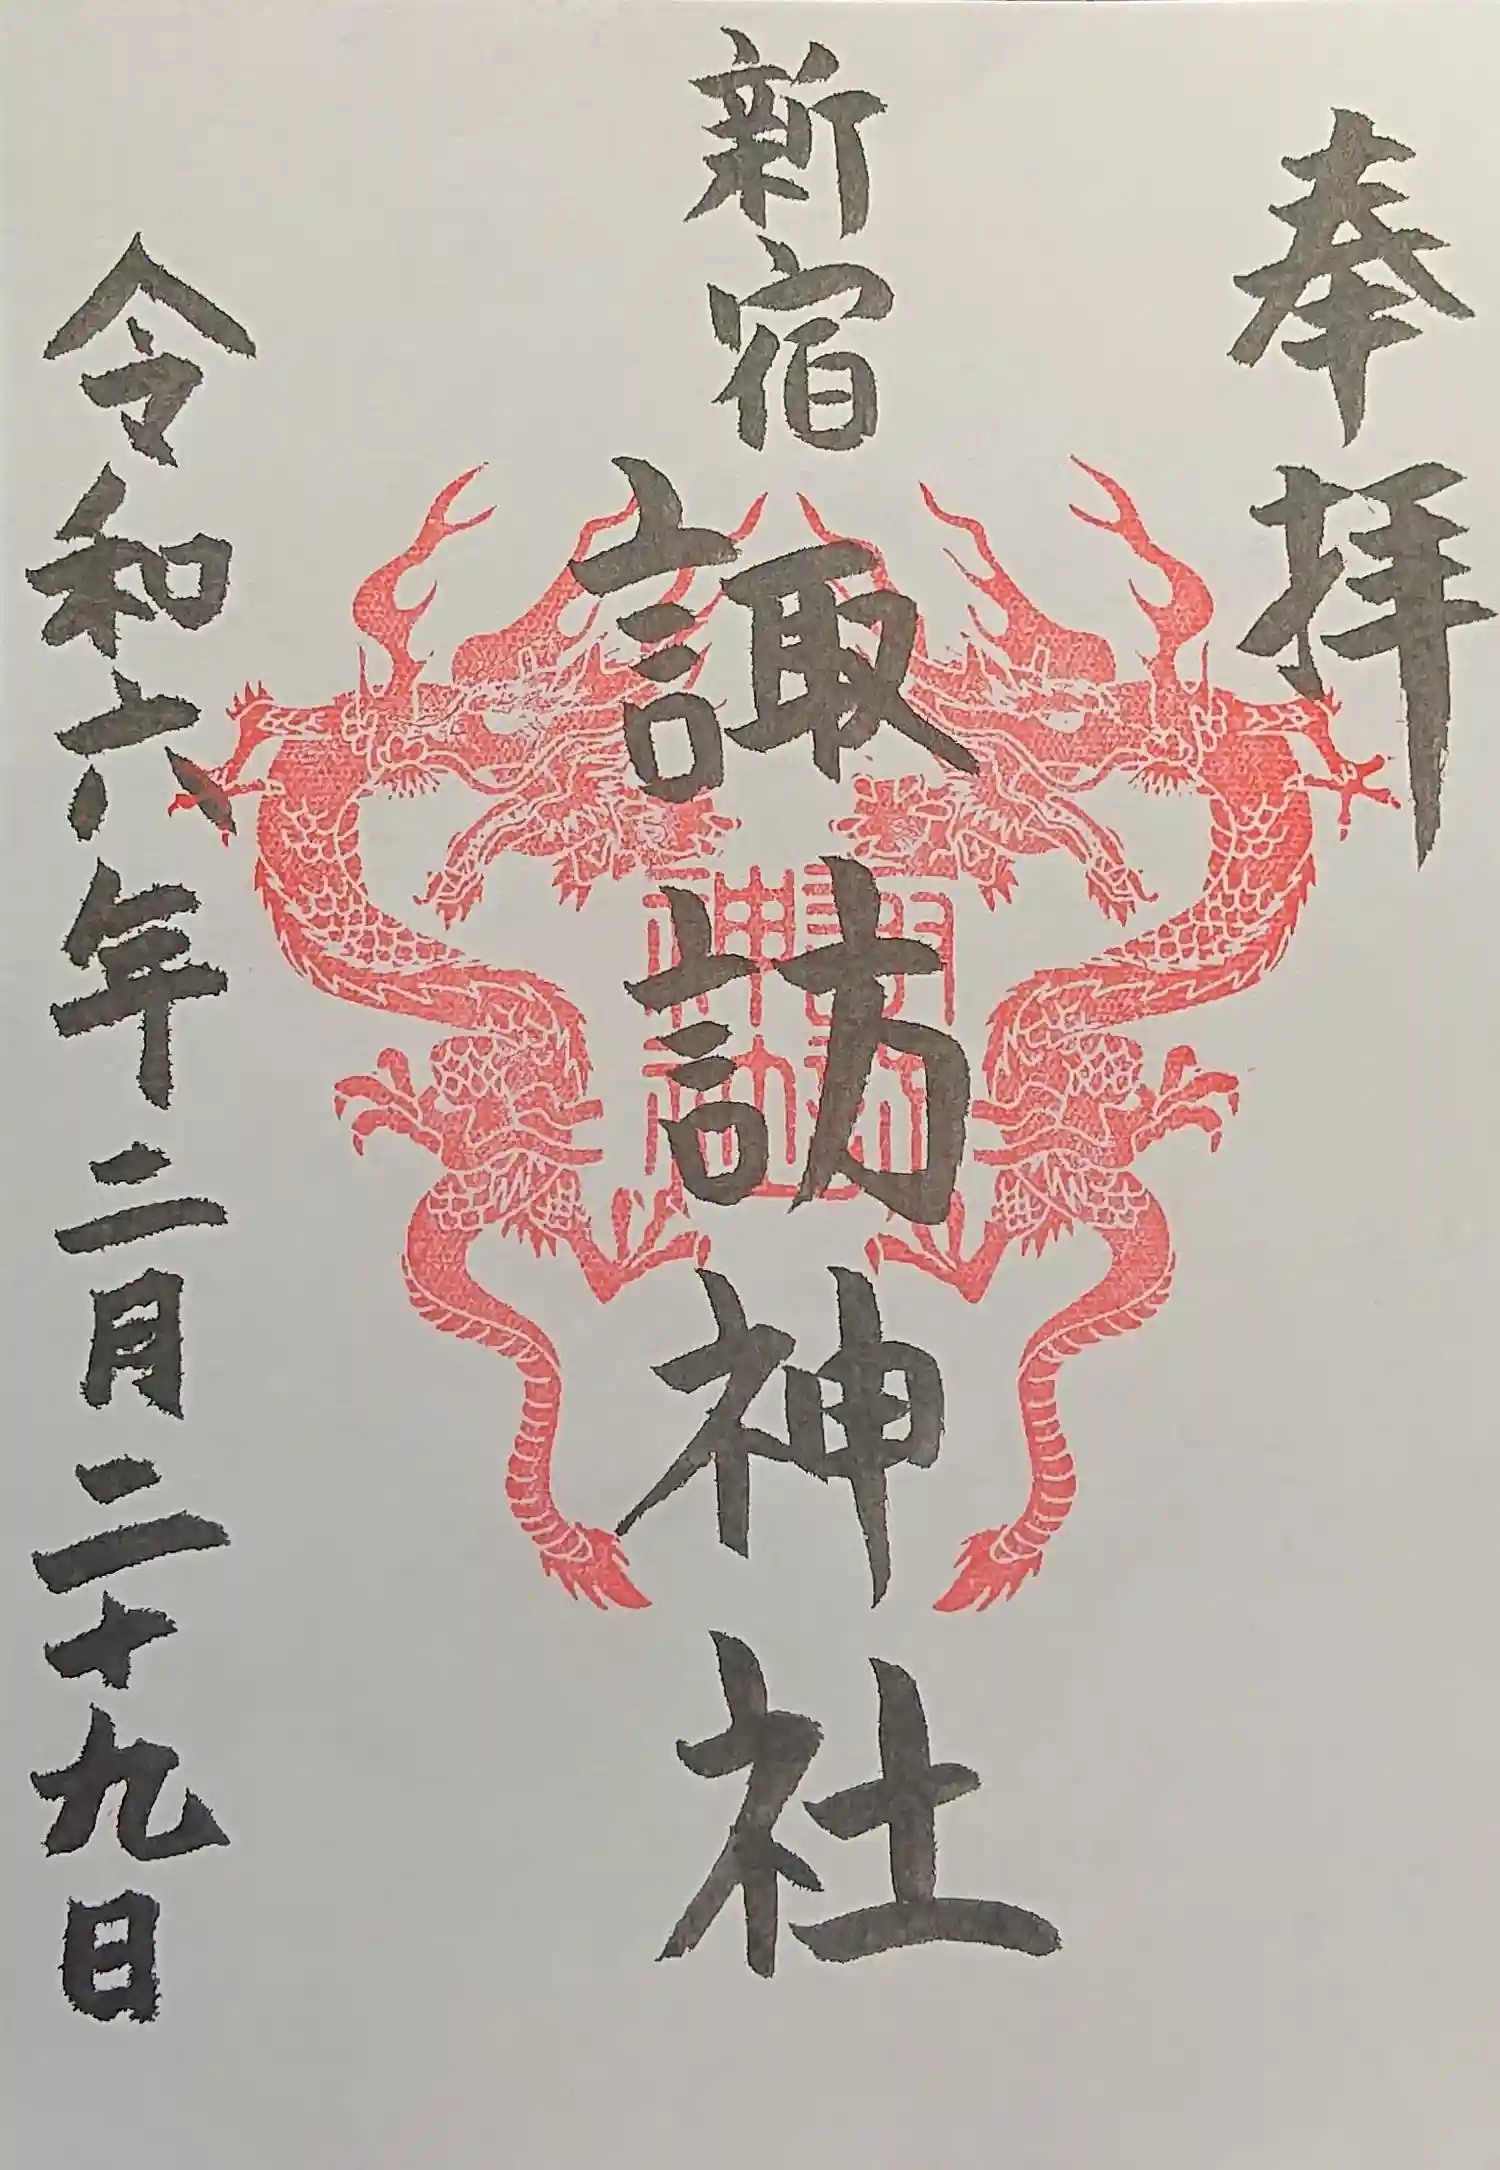 奉拝
新宿
諏訪神社
諏訪
神社
令和六年二月二十九日